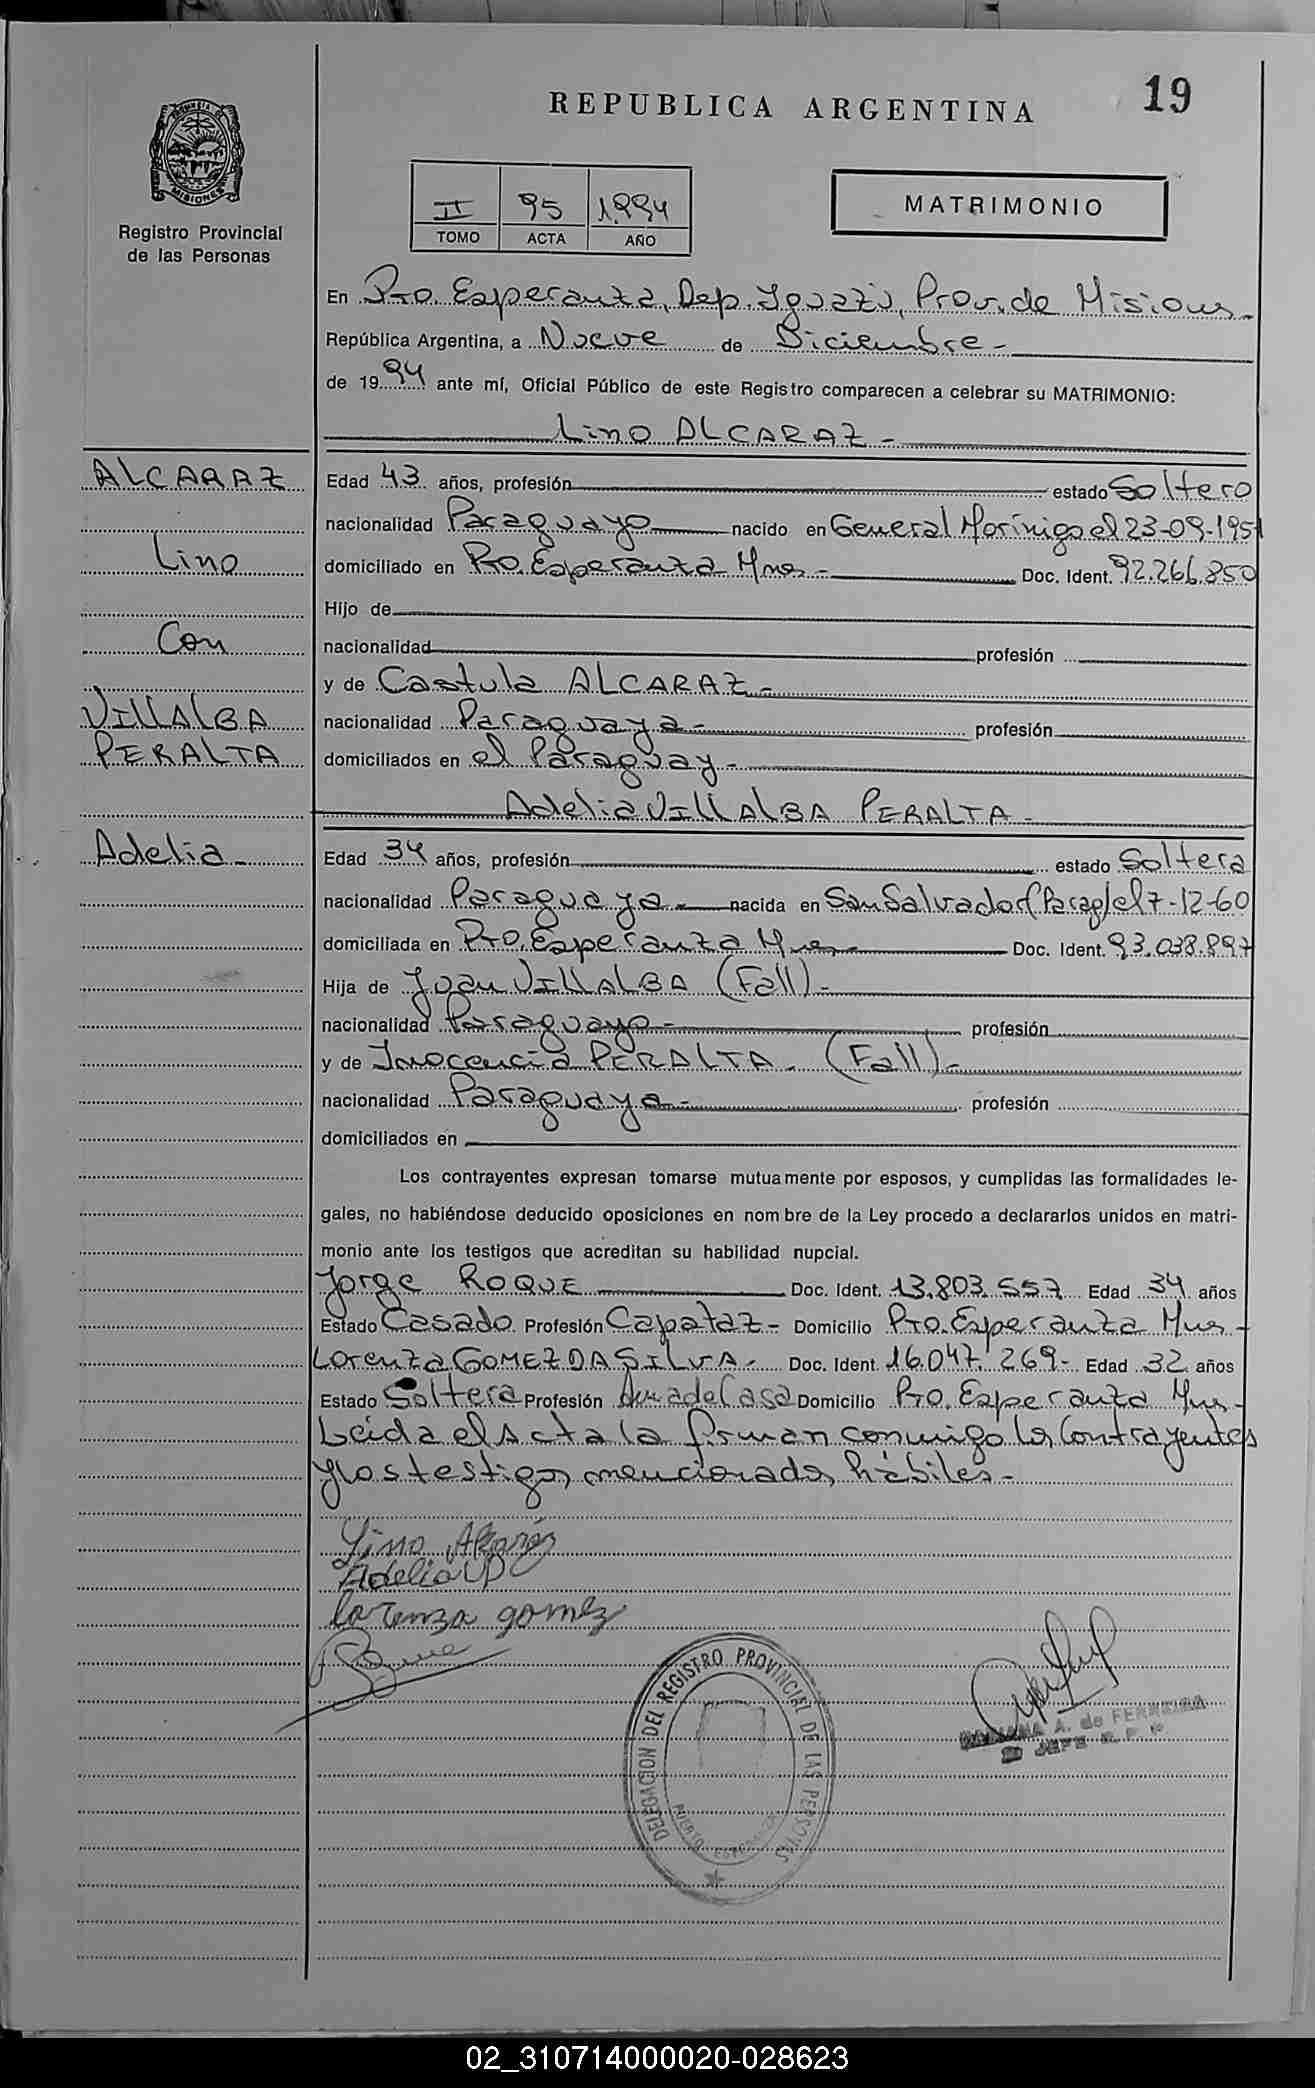 REPUBLICA ARGENTINA
19
MISIONES
Registro Provincial
de las Personas
II 95 1.994
TOMO ACTA AÑO
MATRIMONIO
En Pto. Esperanza, Dep. Iguazú, Prov. de Misiones-
República Argentina, a Nueve de Diciembre-
de 1994 ante mí, Oficial Público de este Registro comparecen a celebrar su MATRIMONIO:
Lino ALCARAZ-
ALCARAZ
Lino
Con
VILLALBA
PERALTA
Adelia-
Edad 43 años, profesión estado Soltero
nacionalidad Paraguayo nacido en General Morínigo el 23-09-1951
domiciliado en Pto. Esperanza Mnes- Doc. Ident. 92.266.850
Hijo de
nacionalidad profesión
y de Castula ALCARAZ-
nacionalidad Paraguaya- profesión
domiciliados en el Paraguay-
Adelia VILLALBA PERALTA-
Edad 34 años, profesión estado Soltera
nacionalidad Paraguaya- nacida en San Salvador (Parag) el 7-12-60
domiciliada en Pto. Esperanza Mnes- Doc. Ident. 93.038.897
Hija de Juan VILLALBA (Fall)-
nacionalidad Paraguayo- profesión
y de Inocencia PERALTA. (Fall)-
nacionalidad Paraguaya- profesión
domiciliados en
Los contrayentes expresan tomarse mutuamente por esposos, y cumplidas las formalidades le-
gales, no habiéndose deducido oposiciones en nombre de la Ley procedo a declararlos unidos en matri-
monio ante los testigos que acreditan su habilidad nupcial.
Jorge ROQUE Doc. Ident. 13.803.557 Edad 34 años
Estado Casado Profesión Capataz- Domicilio Pto. Esperanza Mnes-
Lorenza GOMEZ DA SILVA- Doc. Ident. 16.047.269- Edad 32 años
Estado Soltera Profesión Ama de Casa Domicilio Pto. Esperanza Mnes-
Leída el Acta la firman conmigo los Contrayentes
y los testigos mencionados hábiles-
Lino Alcaráz
Adelia VP
Lorenza gomez
DELEGACION DEL REGISTRO PROVINCIAL DE LAS PERSONAS
PUERTO ESPERANZA
A. de FERREIRA
JEFE R. P. P.
02_310714000020-028623